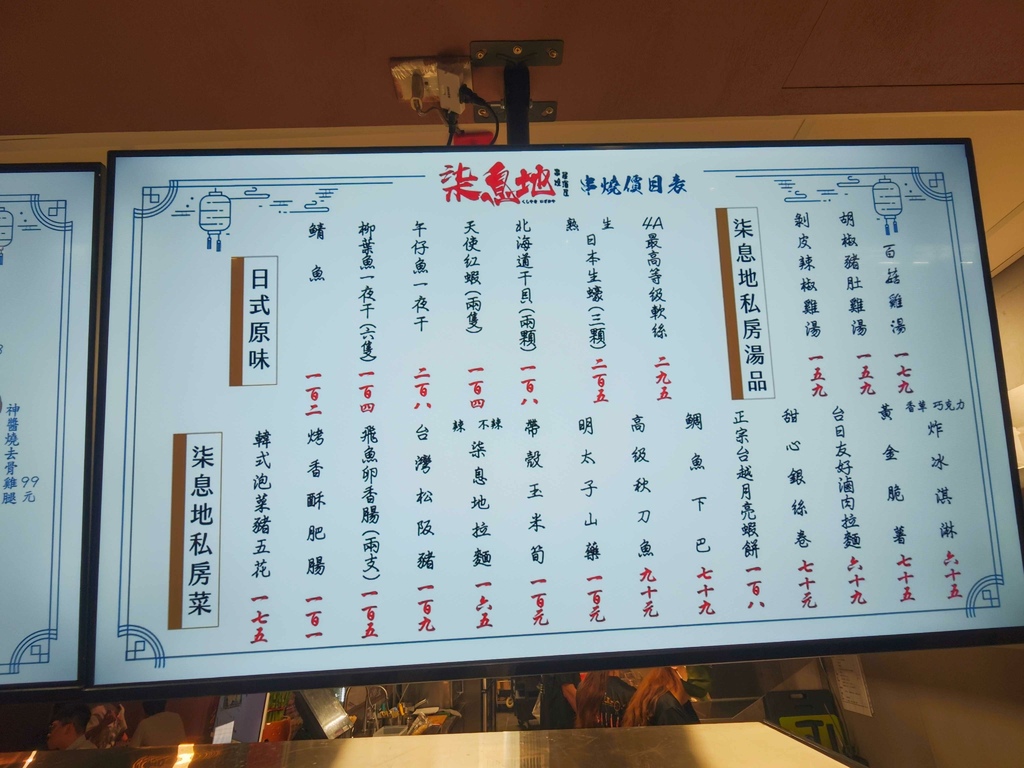 柒息地 串燒價目表
百菇雞湯 一七九
胡椒豬肚雞湯 一五九
剝皮辣椒雞湯 一五九
柒息地私房湯品
4A最高等級軟絲 二九五
熟 生
日本生蠔(三顆) 二百五
北海道干貝(兩顆) 一百八
天使紅蝦(兩隻) 一百四
午仔魚一夜干 二百八
柳葉魚一夜干(六隻) 一百四
鯖魚 一百二
日式原味
香草 巧克力
炸冰淇淋 六十五
黃金脆薯 七十五
台日友好滷肉拉麵 六十九
甜心銀絲卷 七十元
正宗台越月亮蝦餅 一百八
鯛魚下巴 七十九
高級秋刀魚 九十元
明太子山藥 一百元
帶殼玉米筍 一百元
辣 不辣
柒息地拉麵 一六五
台灣松阪豬 一百九
飛魚卵香腸(兩支) 一百五
烤香酥肥腸 一百一
韓式泡菜豬五花 一七五
柒息地私房菜
神醬燒去骨雞腿 99元